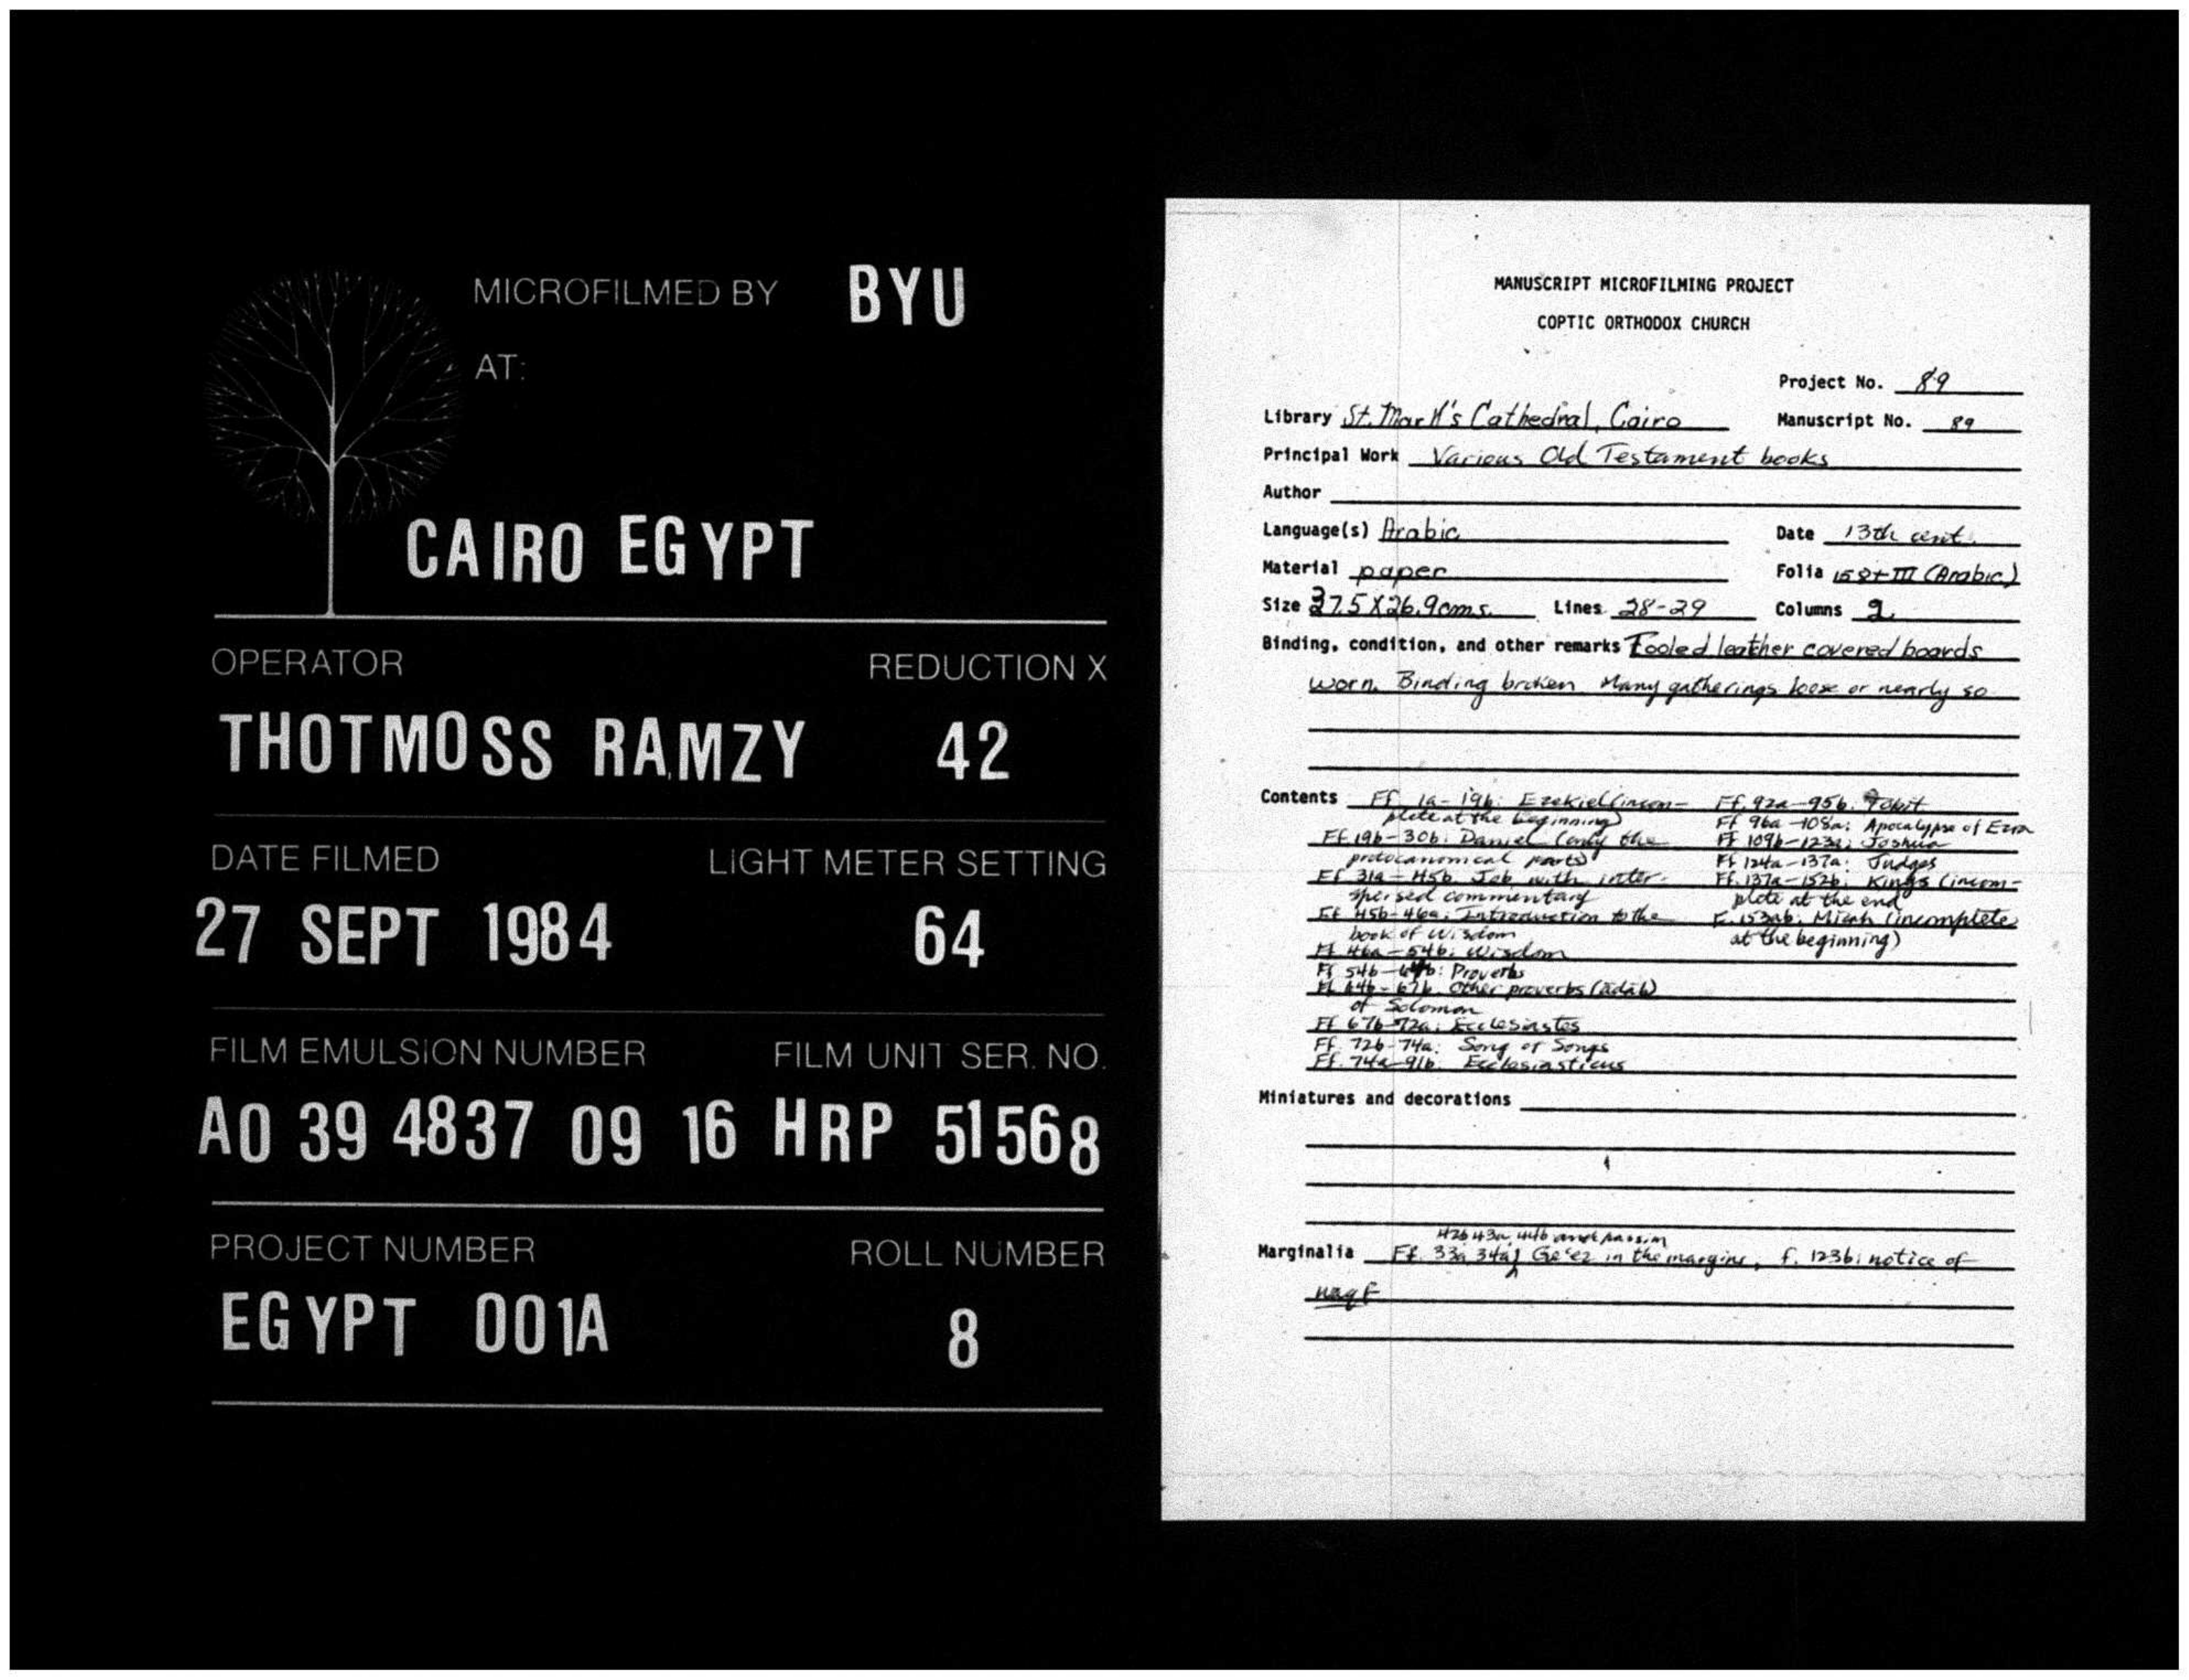 MICROFILMED BY BYU
AT:
CAIRO EGYPT
OPERATOR REDUCTION X
THOTMOSS RAMZY 42
DATE FILMED LIGHT METER SETTING
27 SEPT 1984 64
FILM EMULSION NUMBER FILM UNIT SER. NO.
A0 39 4837 09 16 HRP 51568
PROJECT NUMBER ROLL NUMBER
EGYPT 001A 8
MANUSCRIPT MICROFILMING PROJECT
COPTIC ORTHODOX CHURCH
Project No. 89
Library St. Mark's Cathedral, Cairo Manuscript No. 89
Principal Work Various Old Testament books
Author
Language(s) Arabic Date 13th cent.
Material paper Folia 158+III (Arabic)
Size 37.5 X 26.9 cms. Lines 28-29 Columns 2
Binding, condition, and other remarks Tooled leather covered boards
worn. Binding broken. Many gatherings loose or nearly so
Contents Ff. 1a-19b: Ezekiel (incom-
plete at the beginning)
Ff. 19b-30b: Daniel (only the
protocanonical parts)
Ff. 31a-45b Job with inter-
spersed commentary
Ff. 45b-46a: Introduction to the
book of Wisdom
Ff. 46a-54b: Wisdom
Ff. 54b-64b: Proverbs
Ff. 64b-67b. Other proverbs (adab)
of Solomon
Ff. 67b-72a: Ecclesiastes
Ff. 72b-74a: Song of Songs
Ff. 74a-91b. Ecclesiasticus
Ff. 92a-95b. Tobit
Ff. 96a-108a: Apocalypse of Ezra
Ff. 109b-123a: Joshua
Ff. 124a-137a: Judges
Ff. 137a-152b: Kings (incom-
plete at the end
F. 153ab. Micah (incomplete
at the beginning)
Miniatures and decorations
42b 43a, 44b and passim
Marginalia Ff. 33a, 34a, Ge'ez in the margins, f. 123b: notice of
waqf